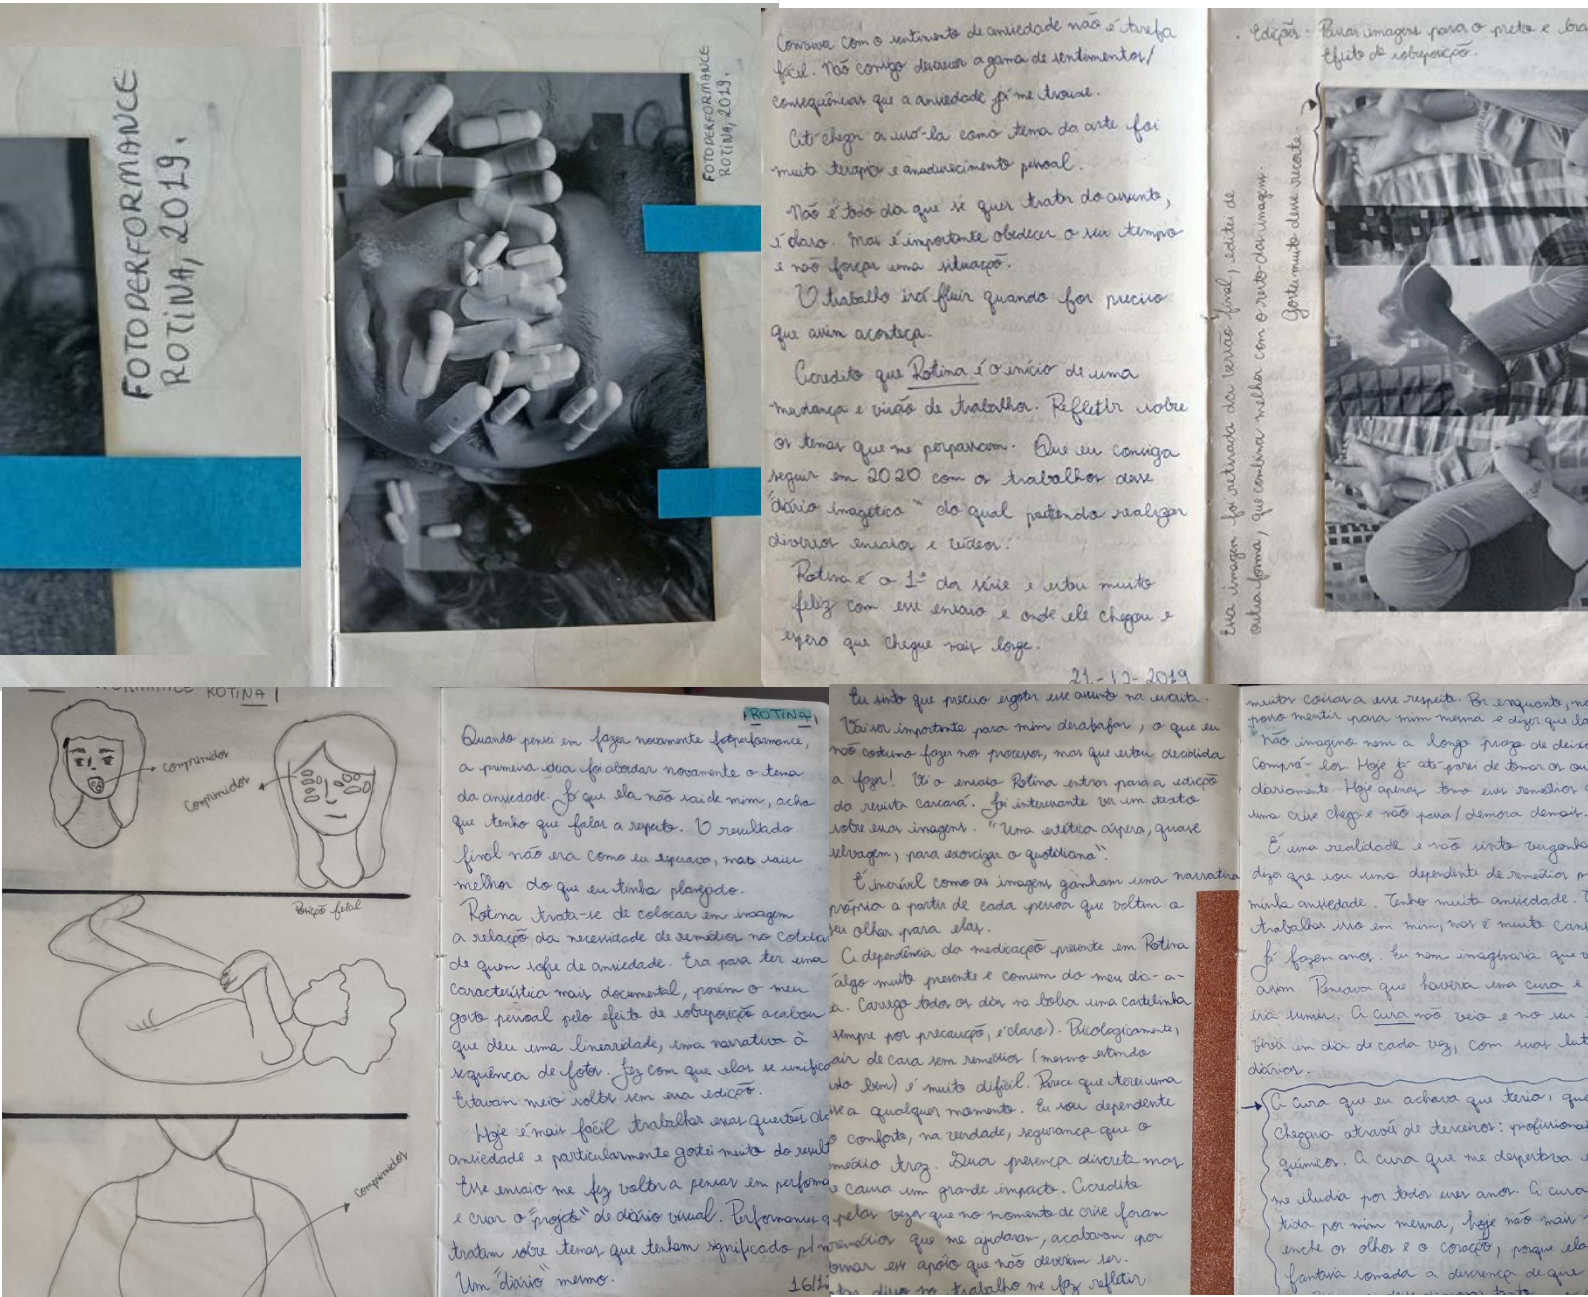 FOTOPERFORMANCE
ROTINA, 2019.
FOTOPERFORMANCE
ROTINA, 2019.
Conviver com o sentimento de ansiedade não é tarefa
fácil. Não consigo descrever a gama de sentimentos/
consequências que a ansiedade já me trouxe.
Até chegar a usá-la como tema da arte foi
muita terapia e amadurecimento pessoal.
Não é todo dia que se quer tratar do assunto,
é claro. Mas é importante obedecer o seu tempo
e não forçar uma situação.
O trabalho irá fluir quando for preciso
que assim aconteça.
Acredito que Rotina é o início de uma
mudança e visão de trabalhos. Refletir sobre
os temas que me perpassam. Que eu consiga
seguir em 2020 com os trabalhos desse
"diário imagético" do qual pretendo realizar
diversos ensaios e vídeos.
Rotina é o 1º da série e estou muito
feliz com esse ensaio e onde ele chegou e
espero que chegue mais longe.
21-12-2019
. Edições: Passar imagens para o preto e
Efeito de sobreposição.
Essa imagem foi retirada da versão final, editei de
outra forma, que combina melhor com o resto das imagens.
Gostei muito desse recorte
ROTINA
comprimidos
Comprimidos
Posição fetal
Comprimidos
ROTINA
Quando pensei em fazer novamente fotoperformance,
a primeira ideia foi abordar novamente o tema
da ansiedade. Já que ela não sai de mim, acho
que tenho que falar a respeito. O resultado
final não era como eu esperava, mas saiu
melhor do que eu tinha planejado.
Rotina trata-se de colocar em imagem
a relação da necessidade de remédios no
de quem sofre de ansiedade. Era para ter uma
característica mais documental, porém o meu
gosto pessoal pelo efeito de sobreposição acabou
que deu uma linearidade, uma narrativa à
sequência de fotos. Fez com que elas se
Estavam meio soltas sem essa edição.
Hoje é mais fácil trabalhar essas questões
ansiedade e particularmente gostei muito do
Esse ensaio me fez voltar a pensar em
e criar o "projeto" de diário visual. Performances
tratam sobre temas que tenham significado p/
Um "diário" mesmo.
16/12
Eu sinto que preciso esgotar esse assunto na escrita.
Vai ser importante para mim desabafar, o que eu
não costumo fazer nos processos, mas que estou decidida
a fazer! Vi o ensaio Rotina entrar para a edição
da revista carcará. Foi interessante ver um texto
sobre essas imagens. "Uma estética áspera, quase
selvagem, para exorcizar o quotidiano".
É incrível como as imagens ganham uma narrativa
própria a partir de cada pessoa que voltam o
seu olhar para elas.
A dependência da medicação presente em Rotina
algo muito presente e comum do meu dia-a-
Carrego todos os dias na bolsa uma cartelinha
sempre por precaução, é claro). Psicologicamente,
sair de casa sem remédios (mesmo estando
bem) é muito difícil. Parece que terei uma
a qualquer momento. Eu sou dependente
conforto, na verdade, segurança que o
traz. Sua presença discreta mas
causa um grande impacto. Acredito
vezes que no momento de crise foram
remédios que me ajudaram, acabavam por
tomar esse apoio que não deveriam ser.
disso no trabalho me fez refletir
muitas coisas a esse respeito. Por enquanto,
posso mentir para mim mesma e dizer que
não imagino nem a longo prazo de
comprá-los. Hoje já até parei de tomar os
diariamente. Hoje apenas tomo esses remédios
uma crise chega e não para/demora demais.
É uma realidade e não sinto vergonha
dizer que sou uma dependente de remédios
minha ansiedade. Tenho muita ansiedade.
trabalhar isso em mim, mas é muito
Já fazem anos. Eu nem imaginaria que
assim. Pensava que haveria uma cura e
iria sumir. A cura não veio e no seu
viver um dia de cada vez, com suas
diárias.
A cura que eu achava que teria,
chegaria através de terceiros:
químicos. A cura que me despertava
me iludia por todos esses anos. A cura
tida por mim mesma, hoje não mais
enche os olhos e o coração, porque
fantasia somada a descrença de que